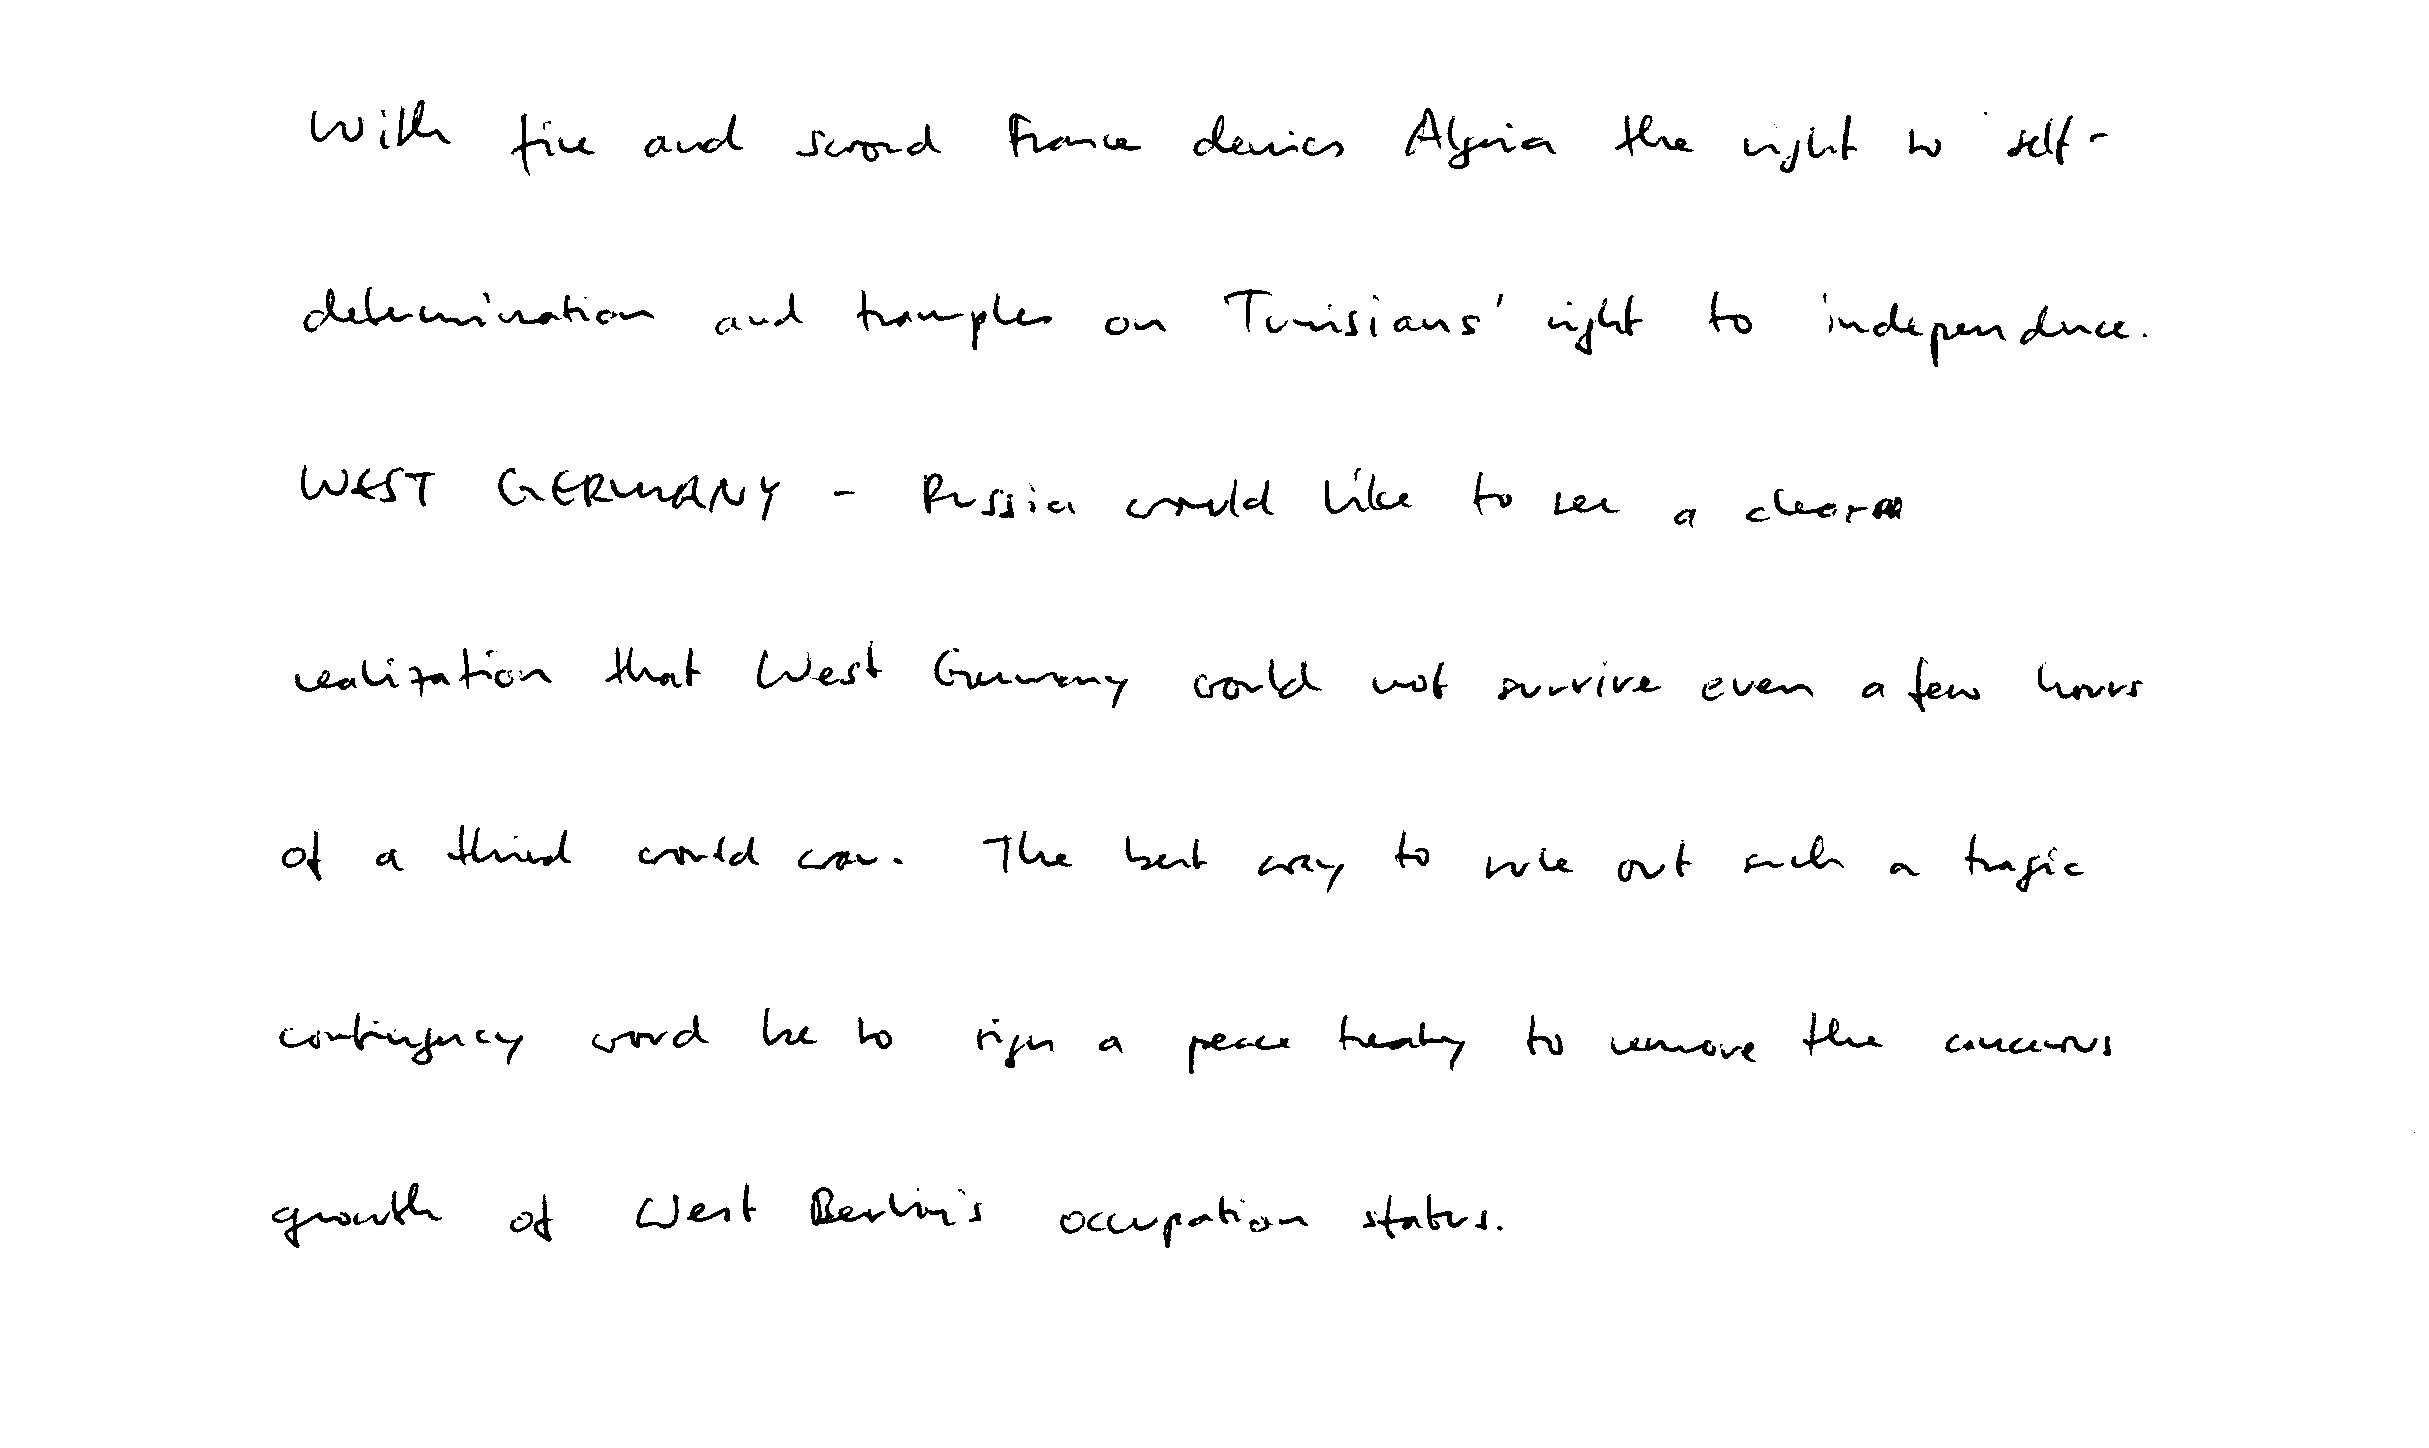 With fire and sword France denies Algeria the right to self-
determination and tramples on Tunisians' right to independence.
WEST GERMANY - Russia would like to see a clear
realization that West Germany could not survive even a few hours
of a third world war. The best way to rule out such a tragic
contingency would be to sign a peace treaty to remove the cancerous
growth of West Berlin's occupation status.